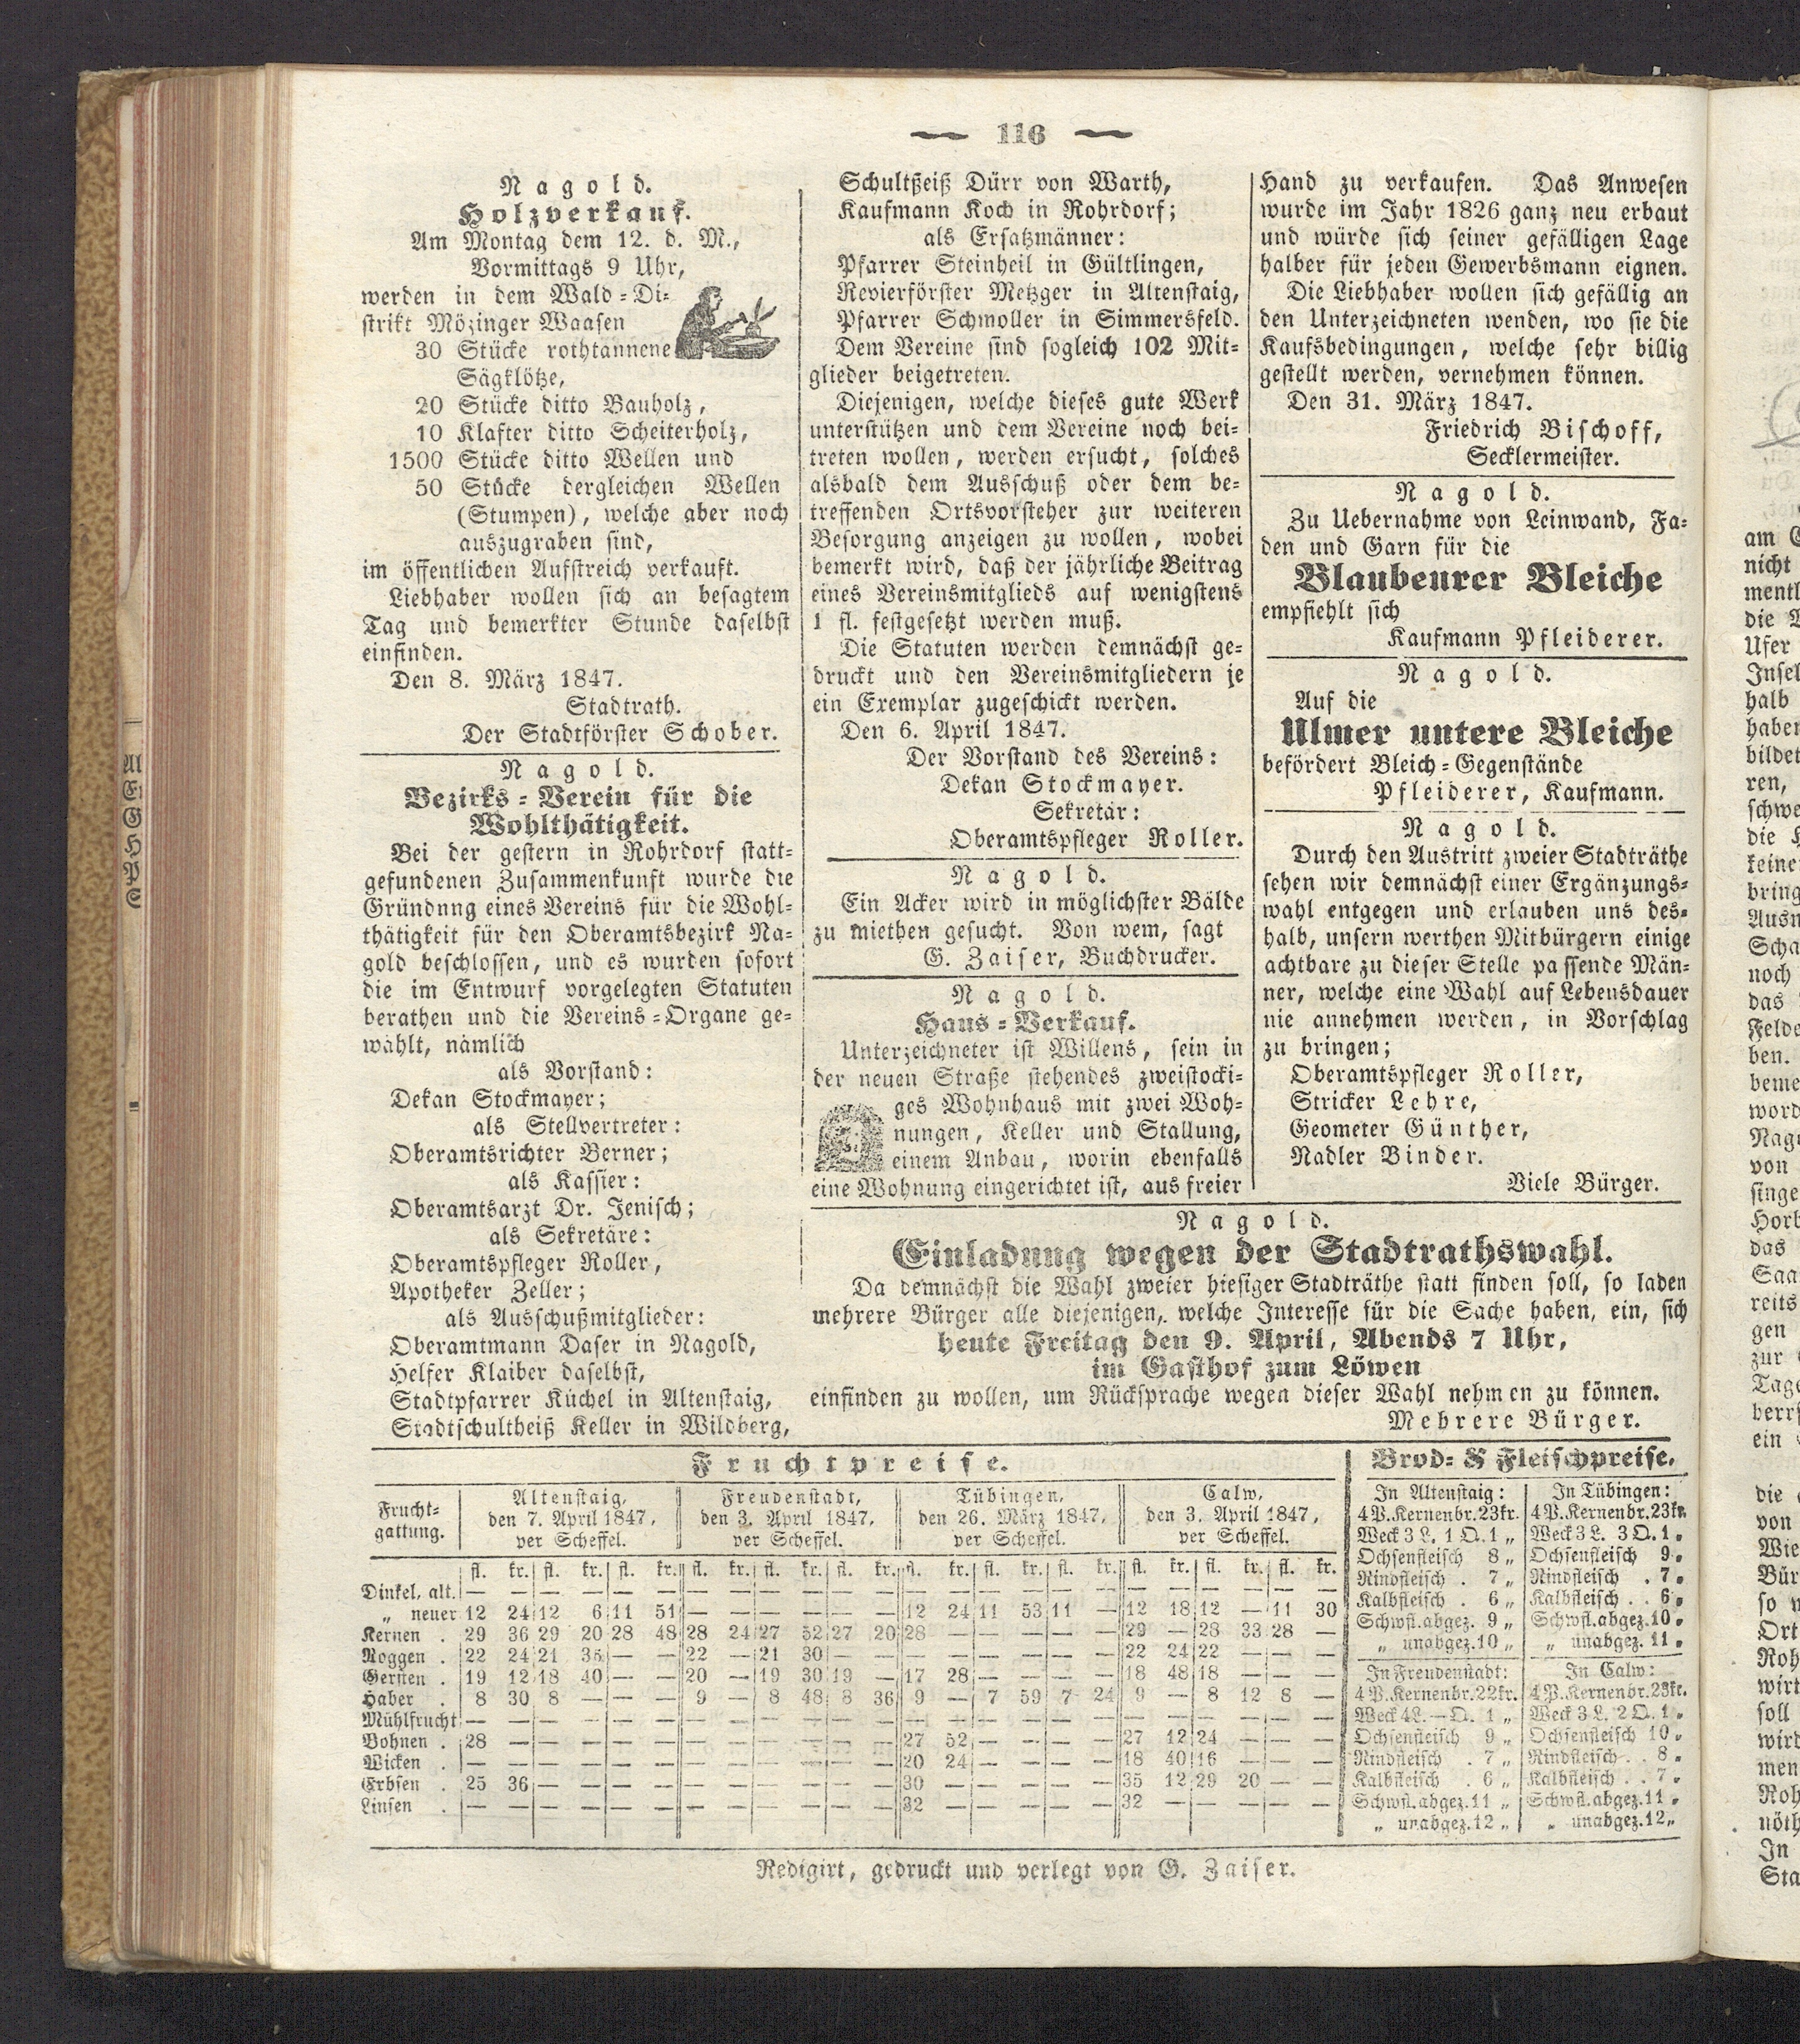 116
Nagold.
Holzverkauf.
Am Montag dem 12. d. M.,
Vormittags 9 Uhr,
werden in dem Wald=Di=
strikt Mözinger Waasen
30 Stücke rothtannene
Sägklötze,
20 Stücke ditto Bauholz,
10 Klafter ditto Scheiterholz,
1500 Stücke ditto Wellen und
50 Stücke dergleichen Wellen
(Stumpen), welche aber noch
auszugraben sind,
im öffentlichen Aufstreich verkauft.
Liebhaber wollen sich an besagtem
Tag und bemerkter Stunde daselbst
einfinden.
Den 8. März 1847.
Stadtrath.
Der Stadtförster Schober.
Nagold.
Bezirks=Verein für die
Wohlthätigkeit.
Bei der gestern in Rohrdorf statt=
gefundenen Zusammenkunft wurde die
Gründnng eines Vereins für die Wohl=
thätigkeit für den Oberamtsbezirk Na=
gold beschlossen, und es wurden sofort
die im Entwurf vorgelegten Statuten
berathen und die Vereins=Organe ge=
wählt, nämlich
als Vorstand:
Dekan Stockmayer;
als Stellvertreter:
Oberamtsrichter Berner;
als Kassier:
Oberamtsarzt Dr. Jenisch;
als Sekretäre:
Oberamtspfleger Roller,
Apotheker Zeller;
als Ausschußmitglieder:
Oberamtmann Daser in Nagold,
Helfer Klaiber daselbst,
Stadtpfarrer Küchel in Altenstaig,
Stadtschultheiß Keller in Wildberg,
Schultßeiß Dürr von Warth,
Kaufmann Koch in Rohrdorf;
als Ersatzmänner:
Pfarrer Steinheil in Gültlingen,
Revierförster Metzger in Altenstaig,
Pfarrer Schmoller in Simmersfeld.
Dem Vereine sind sogleich 102 Mit=
glieder beigetreten.
Diejenigen, welche dieses gute Werk
unterstützen und dem Vereine noch bei=
treten wollen, werden ersucht, solches
alsbald dem Ausschuß oder dem be=
treffenden Ortsvorsteher zur weiteren
Besorgung anzeigen zu wollen, wobei
bemerkt wird, daß der jährliche Beitrag
eines Vereinsmitglieds auf wenigstens
1 fl. festgesetzt werden muß.
Die Statuten werden demnächst ge=
druckt und den Vereinsmitgliedern je
ein Exemplar zugeschickt werden.
Den 6. April 1847.
Der Vorstand des Vereins:
Dekan Stockmayer.
Sekretär:
Oberamtspfleger Roller.
Nagold.
Ein Acker wird in möglichster Bälde
zu miethen gesucht. Von wem, sagt
G. Zaiser, Buchdrucker.
Nagold.
Haus=Verkauf.
Unterzeichneter ist Willens, sein in
der neuen Straße stehendes zweistocki=
ges Wohnhaus mit zwei Woh=
nungen, Keller und Stallung,
einem Anbau, worin ebenfalls
eine Wohnung eingerichtet ist, aus freier
Hand zu verkaufen. Das Anwesen
wurde im Jahr 1826 ganz neu erbaut
und würde sich seiner gefälligen Lage
halber für jeden Gewerbsmann eignen.
Die Liebhaber wollen sich gefällig an
den Unterzeichneten wenden, wo sie die
Kaufsbedingungen, welche sehr billig
gestellt werden, vernehmen können.
Den 31. März 1847.
Friedrich Bischoff,
Secklermeister.
Nagold.
Zu Uebernahme von Leinwand, Fa=
den und Garn für die
Blaubeurer Bleiche
empfiehlt sich
Kaufmann Pfleiderer.
Nagold.
Auf die
Ulmer untere Bleiche
befördert Bleich=Gegenstände
Pfleiderer, Kaufmann.
Nagold.
Durch den Austritt zweier Stadträthe
sehen wir demnächst einer Ergänzungs=
wahl entgegen und erlauben uns des=
halb, unsern werthen Mitbürgern einige
achtbare zu dieser Stelle passende Män=
ner, welche eine Wahl auf Lebensdauer
nie annehmen werden, in Vorschlag
zu bringen;
Oberamtspfleger Roller,
Stricker Lehre,
Geometer Günther,
Nadler Binder.
Viele Bürger.
Nagold.
Einladung wegen der Stadtrathswahl.
Da demnächst die Wahl zweier hiesiger Stadträthe statt finden soll, so laden
mehrere Bürger alle diejenigen, welche Interesse für die Sache haben, ein, sich
heute Freitag den 9. April, Abends 7 Uhr,
im Gasthof zum Löwen
einfinden zu wollen, um Rücksprache wegen dieser Wahl nehmen zu können.
Mehrere Bürger.
Fruchtpreise.
Frucht=
gattung.
Altenstaig,
den 7. April 1847,
per Scheffel.
Freudenstadt,
den 3. April 1847,
per Scheffel.
Tübingen,
den 26. März 1847,
per Scheffel.
Calw,
den 3. April 1847,
per Scheffel.
fl. kr. fl. kr. fl. kr. fl. kr. fl. kr. fl. kr. fl. kr. fl. kr. fl. kr. fl. kr. fl. kr. fl. kr.
Dinkel, alt. — — — — — — — — — — — — — — — — — — — — — — — —
„ neuer 12 24 12 6 11 51 — — — — — — 12 24 11 53 11 — 12 18 12 — 11 30
Kernen . 29 36 29 20 28 48 28 24 27 52 27 20 28 — — — — — 29 — 28 33 28 —
Roggen . 22 24 21 35 — — 22 — 21 30 — — — — — — — — 22 24 22 — — —
Gersten . 19 12 18 40 — — 20 — 19 30 19 — 17 28 — — — — 18 48 18 — — —
Haber . 8 30 8 — — — 9 — 8 48 8 36 9 — 7 59 7 24 9 — 8 12 8 —
Mühlfrucht — — — — — — — — — — — — — — — — — — — — — — — —
Bohnen . 28 — — — — — — — — — — — 27 52 — — — — 27 12 24 — — —
Wicken . — — — — — — — — — — — — 20 24 — — — — 18 40 16 — — —
Erbsen . 25 36 — — — — — — — — — — 30 — — — — — 35 12 29 20 — —
Linsen . — — — — — — — — — — — — 32 — — — — — 32 — — — — —
Brod= & Fleischpreise.
In Altenstaig:
4 P. Kernenbr. 23kr.
Weck 3 L. 1 Q. 1 „
Ochsenfleisch 8 „
Rindfleisch . 7 „
Kalbfleisch . 6 „
Schwfl. abgez. 9 „
„ unabgez. 10 „
In Tübingen:
4 P. Kernenbr. 23kr.
Weck 3 L. 3 Q. 1 „
Ochsenfleisch 9 „
Rindfleisch . 7 „
Kalbfleisch . . 6 „
Schwfl. abgez. 10 „
„ unabgez. 11 „
In Freudenstadt:
4 P. Kernenbr. 22kr.
Weck 4 L. — Q. 1 „
Ochsenfleisch 9 „
Rindfleisch . 7 „
Kalbfleisch . 6 „
Schwfl. abgez. 11 „
„ unabgez. 12 „
In Calw:
4 P. Kernenbr. 23kr.
Weck 3 L. 2 Q. 1 „
Ochsenfleisch 10 „
Rindfleisch . . 8 „
Kalbfleisch . . 7 „
Schwfl. abgez. 11 „
„ unabgez. 12 „
Redigirt, gedruckt und verlegt von G. Zaiser.